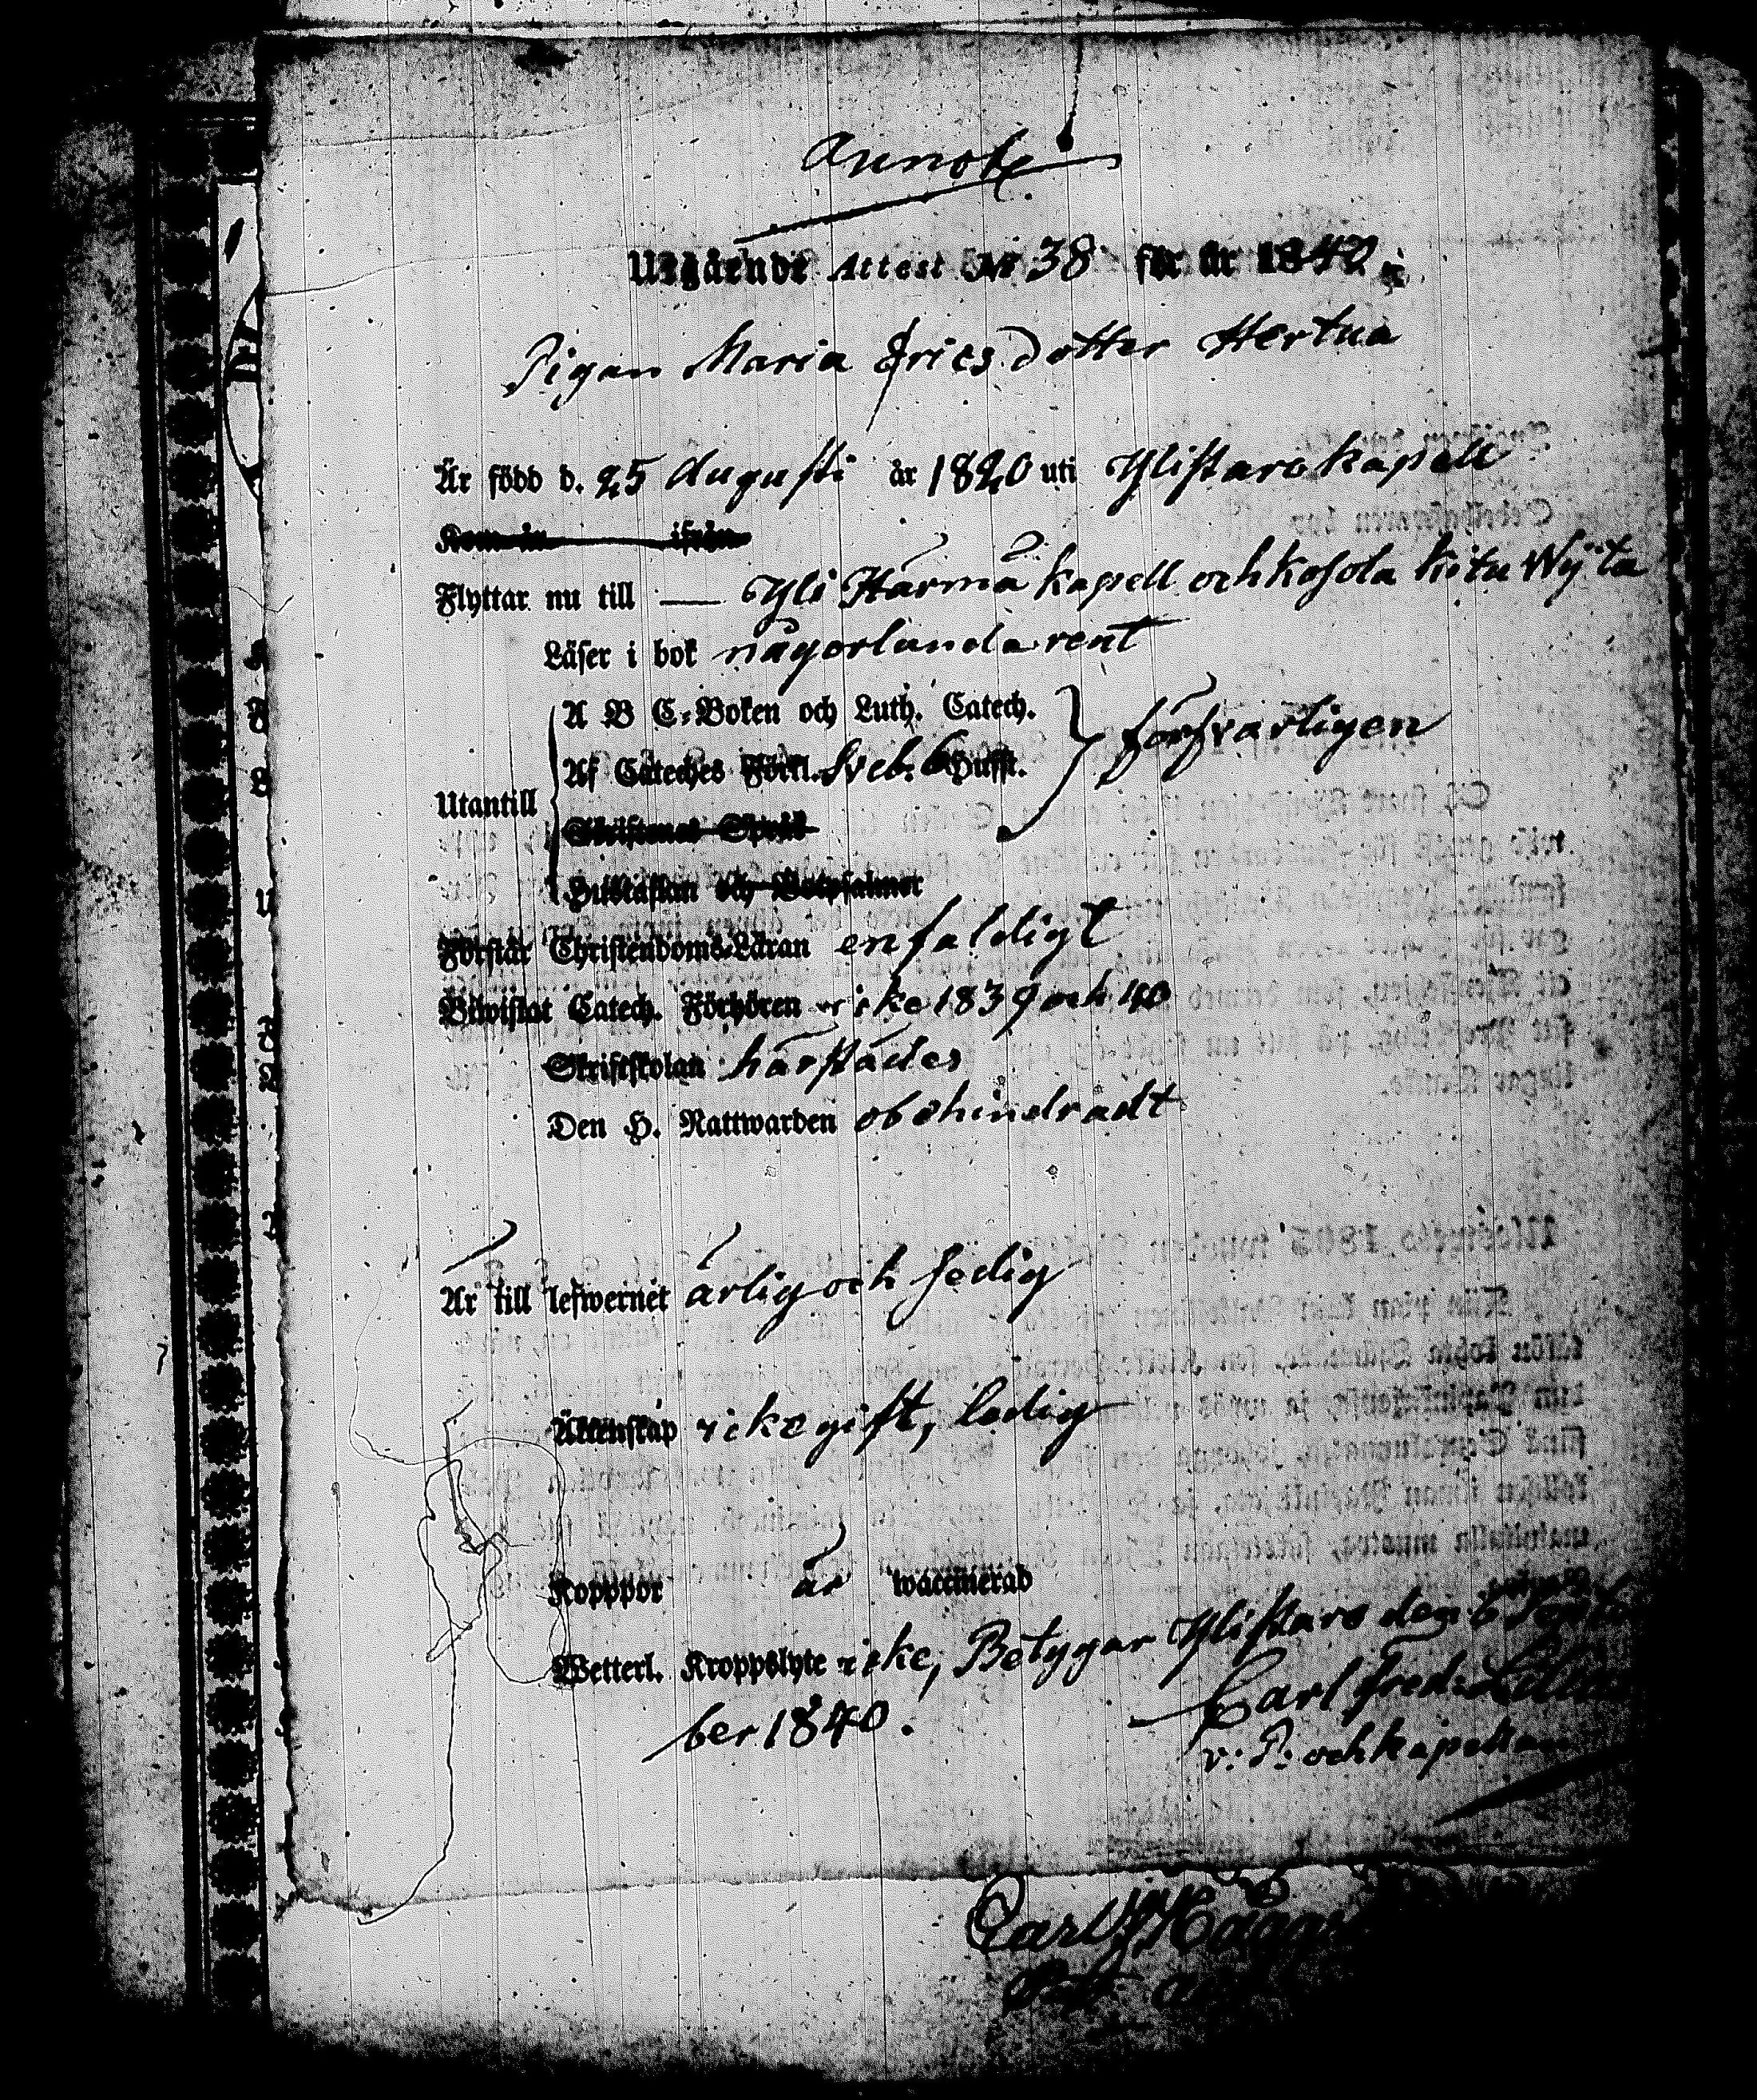 Annot.
Utgående Attest № 38 för år 1840
Pigan Maria Ericsdotter Hertua
Är född d. 25 Augusti år 1820 uti Ylistaro kapell
Kom år ifrån
Flyttar nu till — Yli Härmä kapell och kosola
Läser i bok någorlunda rent
A B C-Boken och Luth. Catech.
Af Cateches Förkl. Sveb. 6 Hufst. försvarligen
Utantill
Skriftenes Språk
Hustaflan och Botpsalmer
Förstår Christendoms-Läran enfaldigt
Biwistat Catech. Förhören icke 1839 och 40
Skriftskolan härstädes
Den H. Nattwarden obehindradt
Är till lefwernet ärlig och sedig
Äktenskap icke gift, ledig
Kopppor är waccinerad
Wetterl. Kroppslyte icke, Betygar Ylistaro den 6 Septem
ber 1840.
Carl Fred.
v: P: och kapellan
Carl